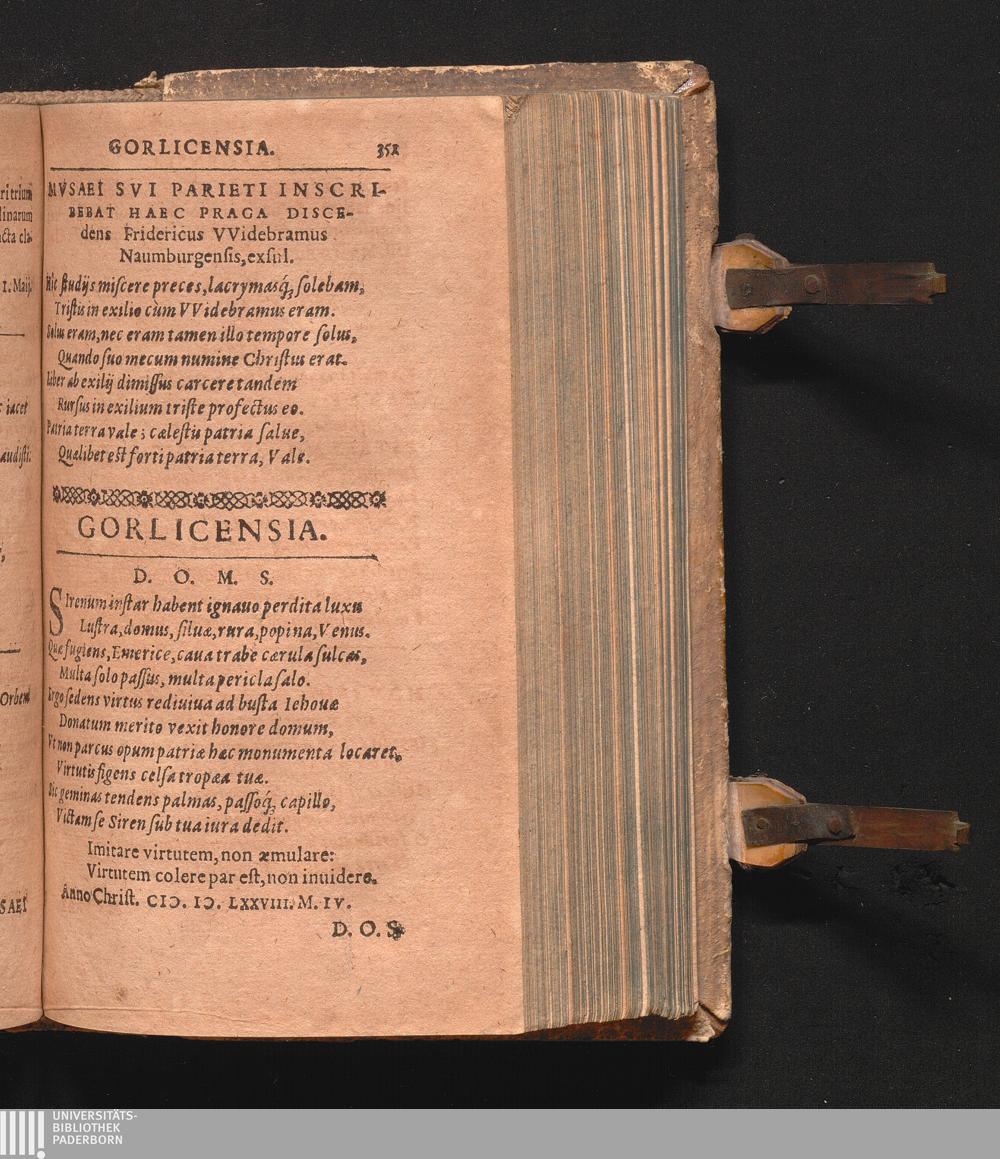 GORLICENSIA. 352
MVSAEI SVI PARIETI INSCRI-
BEBAT HAEC PRAGA DISCE-
dens Fridericus VVidebramus
Naumburgensis, exsul.
Hic studijs miscere preces, lacrymasq́; solebam,
Tristis in exilio cùm VVidebramus eram.
Solus eram, nec eram tamen illo tempore solus,
Quando suo mecum numine Christus erat.
Liber ab exilij dimissus carcere tandem
Rursus in exilium triste profectus eo.
Patria terra vale; cælestis patria salue,
Qualibet est forti patria terra, Vale.
GORLICENSIA.
D. O. M. S.
Sirenum instar habent ignauo perdita luxu
Lustra, domus, siluæ, rura, popina, Venus.
Quæ fugiens, Emerice, caua trabe cærula sulcas,
Multa solo passus, multa pericla salo.
Ergo sedens virtus rediuiua ad busta Iehouæ
Donatum merito vexit honore domum,
Vt non parcus opum patriæ hæc monumenta locaret,
Virtutis figens celsa tropæa tuæ.
Sic geminas tendens palmas, passoq́; capillo,
Victam se Siren sub tua iura dedit.
Imitare virtutem, non æmulare:
Virtutem colere par est, non inuidere.
Anno Christ. CIↃ. IↃ. LXXVIII. M. IV.
D. O. S.
ritrium
linarum
cta cla-
1. Maij.
iacet
audisti:
Orbem
SAEI
UNIVERSITÄTS-
BIBLIOTHEK
PADERBORN